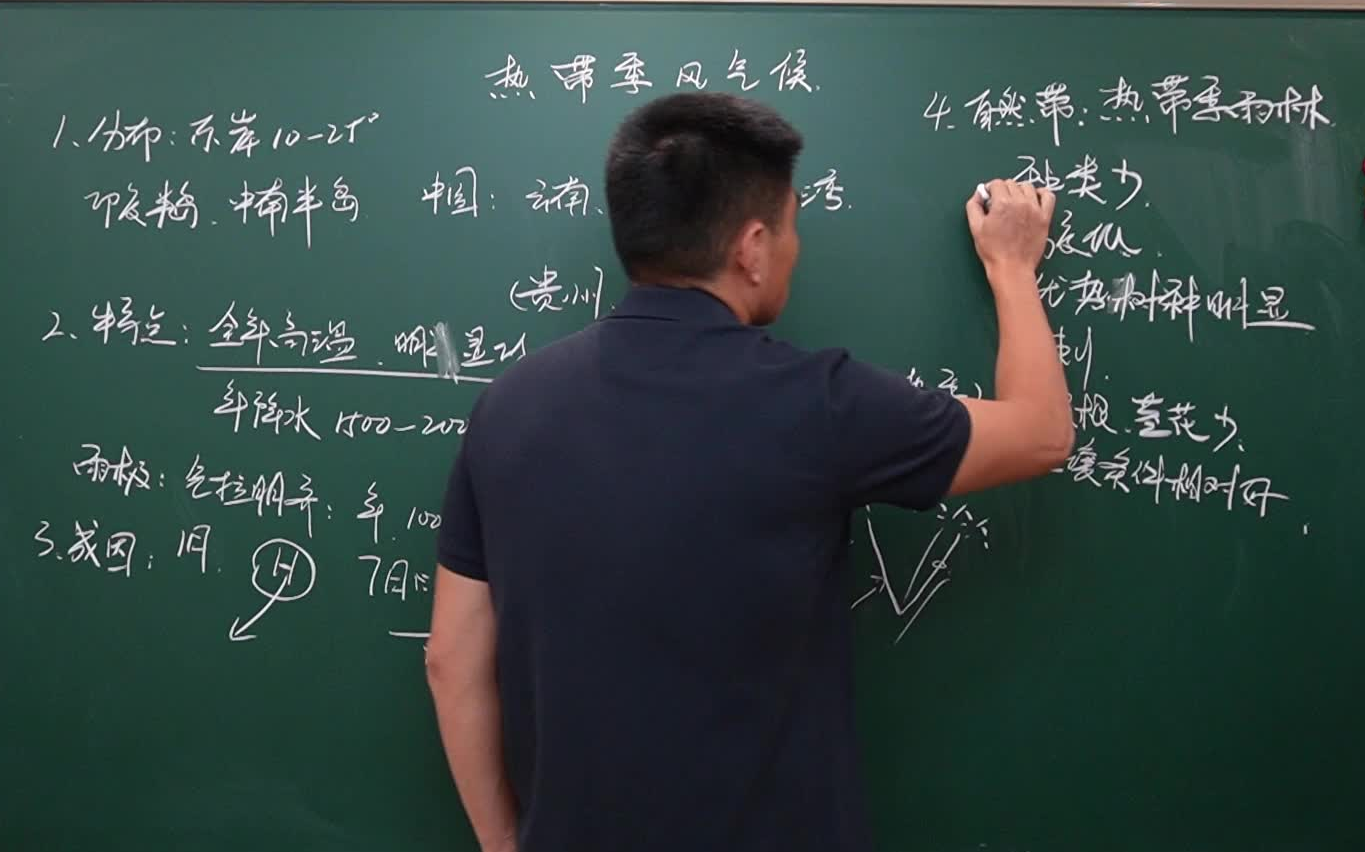 热带季风气候
1. 分布: 东岸10-25°
印度半岛. 中南半岛 中国: 云南、 湾.
(贵州
2. 特点: 全年高温. 明 显
年降水1500-200
雨极: 乞拉朋齐: 年 100
3. 成因: 1月. H 7月
4. 自然带: 热带季雨林
种类少.
度低.
优势树种明显
根. 茎花少.
条件相对好